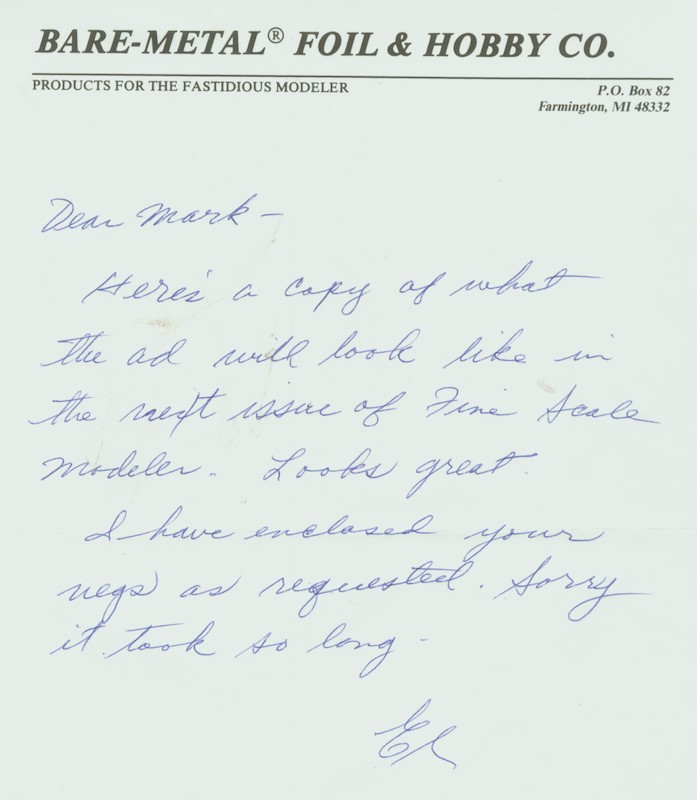 BARE-METAL® FOIL & HOBBY CO.
PRODUCTS FOR THE FASTIDIOUS MODELER
P.O. Box 82
Farmington, MI 48332
Dear Mark -
Here's a copy of what
the ad will look like in
the next issue of Fine Scale
Modeler. Looks great.
I have enclosed your
negs as requested. Sorry
it took so long -